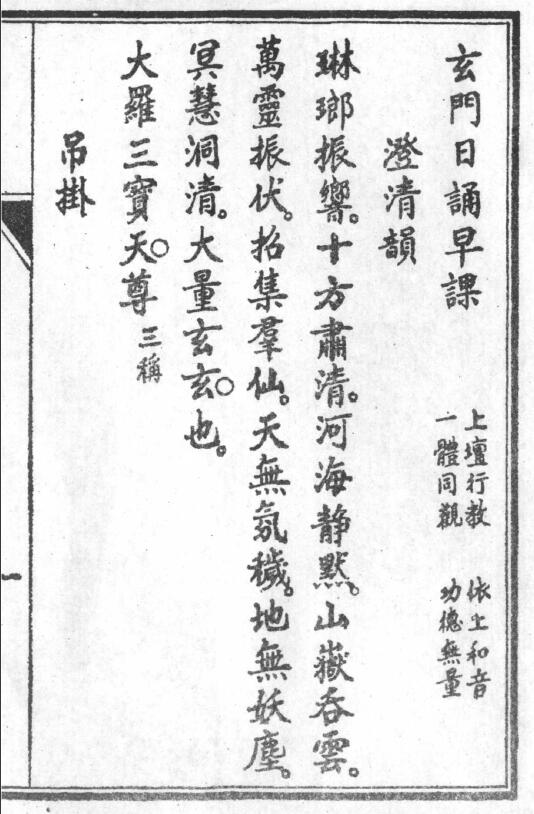 玄門日誦早課
上壇行教
一體同觀
依和音
功德無量
澄清韻
琳瑯振響。十方肅清。河海靜默。山嶽吞雲。
萬靈振伏。招集羣仙。天無氛穢。地無妖塵。
冥慧洞清。大量玄玄○也。
大羅三寶天○尊 三稱
吊掛
一